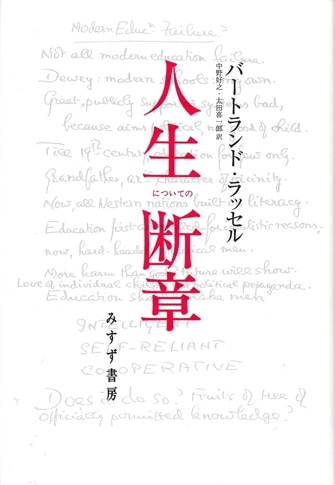 Modern Educn Failure?
Not all modern education failure.
Dewey: modern schools own.
Great, publicly bad,
because aims of child.
Till 19th century for few only.
Grandfather, character of
Now all Western nations literacy.
Education first reasons,
now, hard-headed men.
More harm than good future will show.
Love of individual child political propaganda.
Education make men
INTELLIGENT
SELF-RELIANT
COOPERATIVE
Does it do so? Fruits of tree of
officially permitted knowledge?
バートランド・ラッセル
中野好之・太田喜一郎 訳
人生
についての
断章
みすず書房